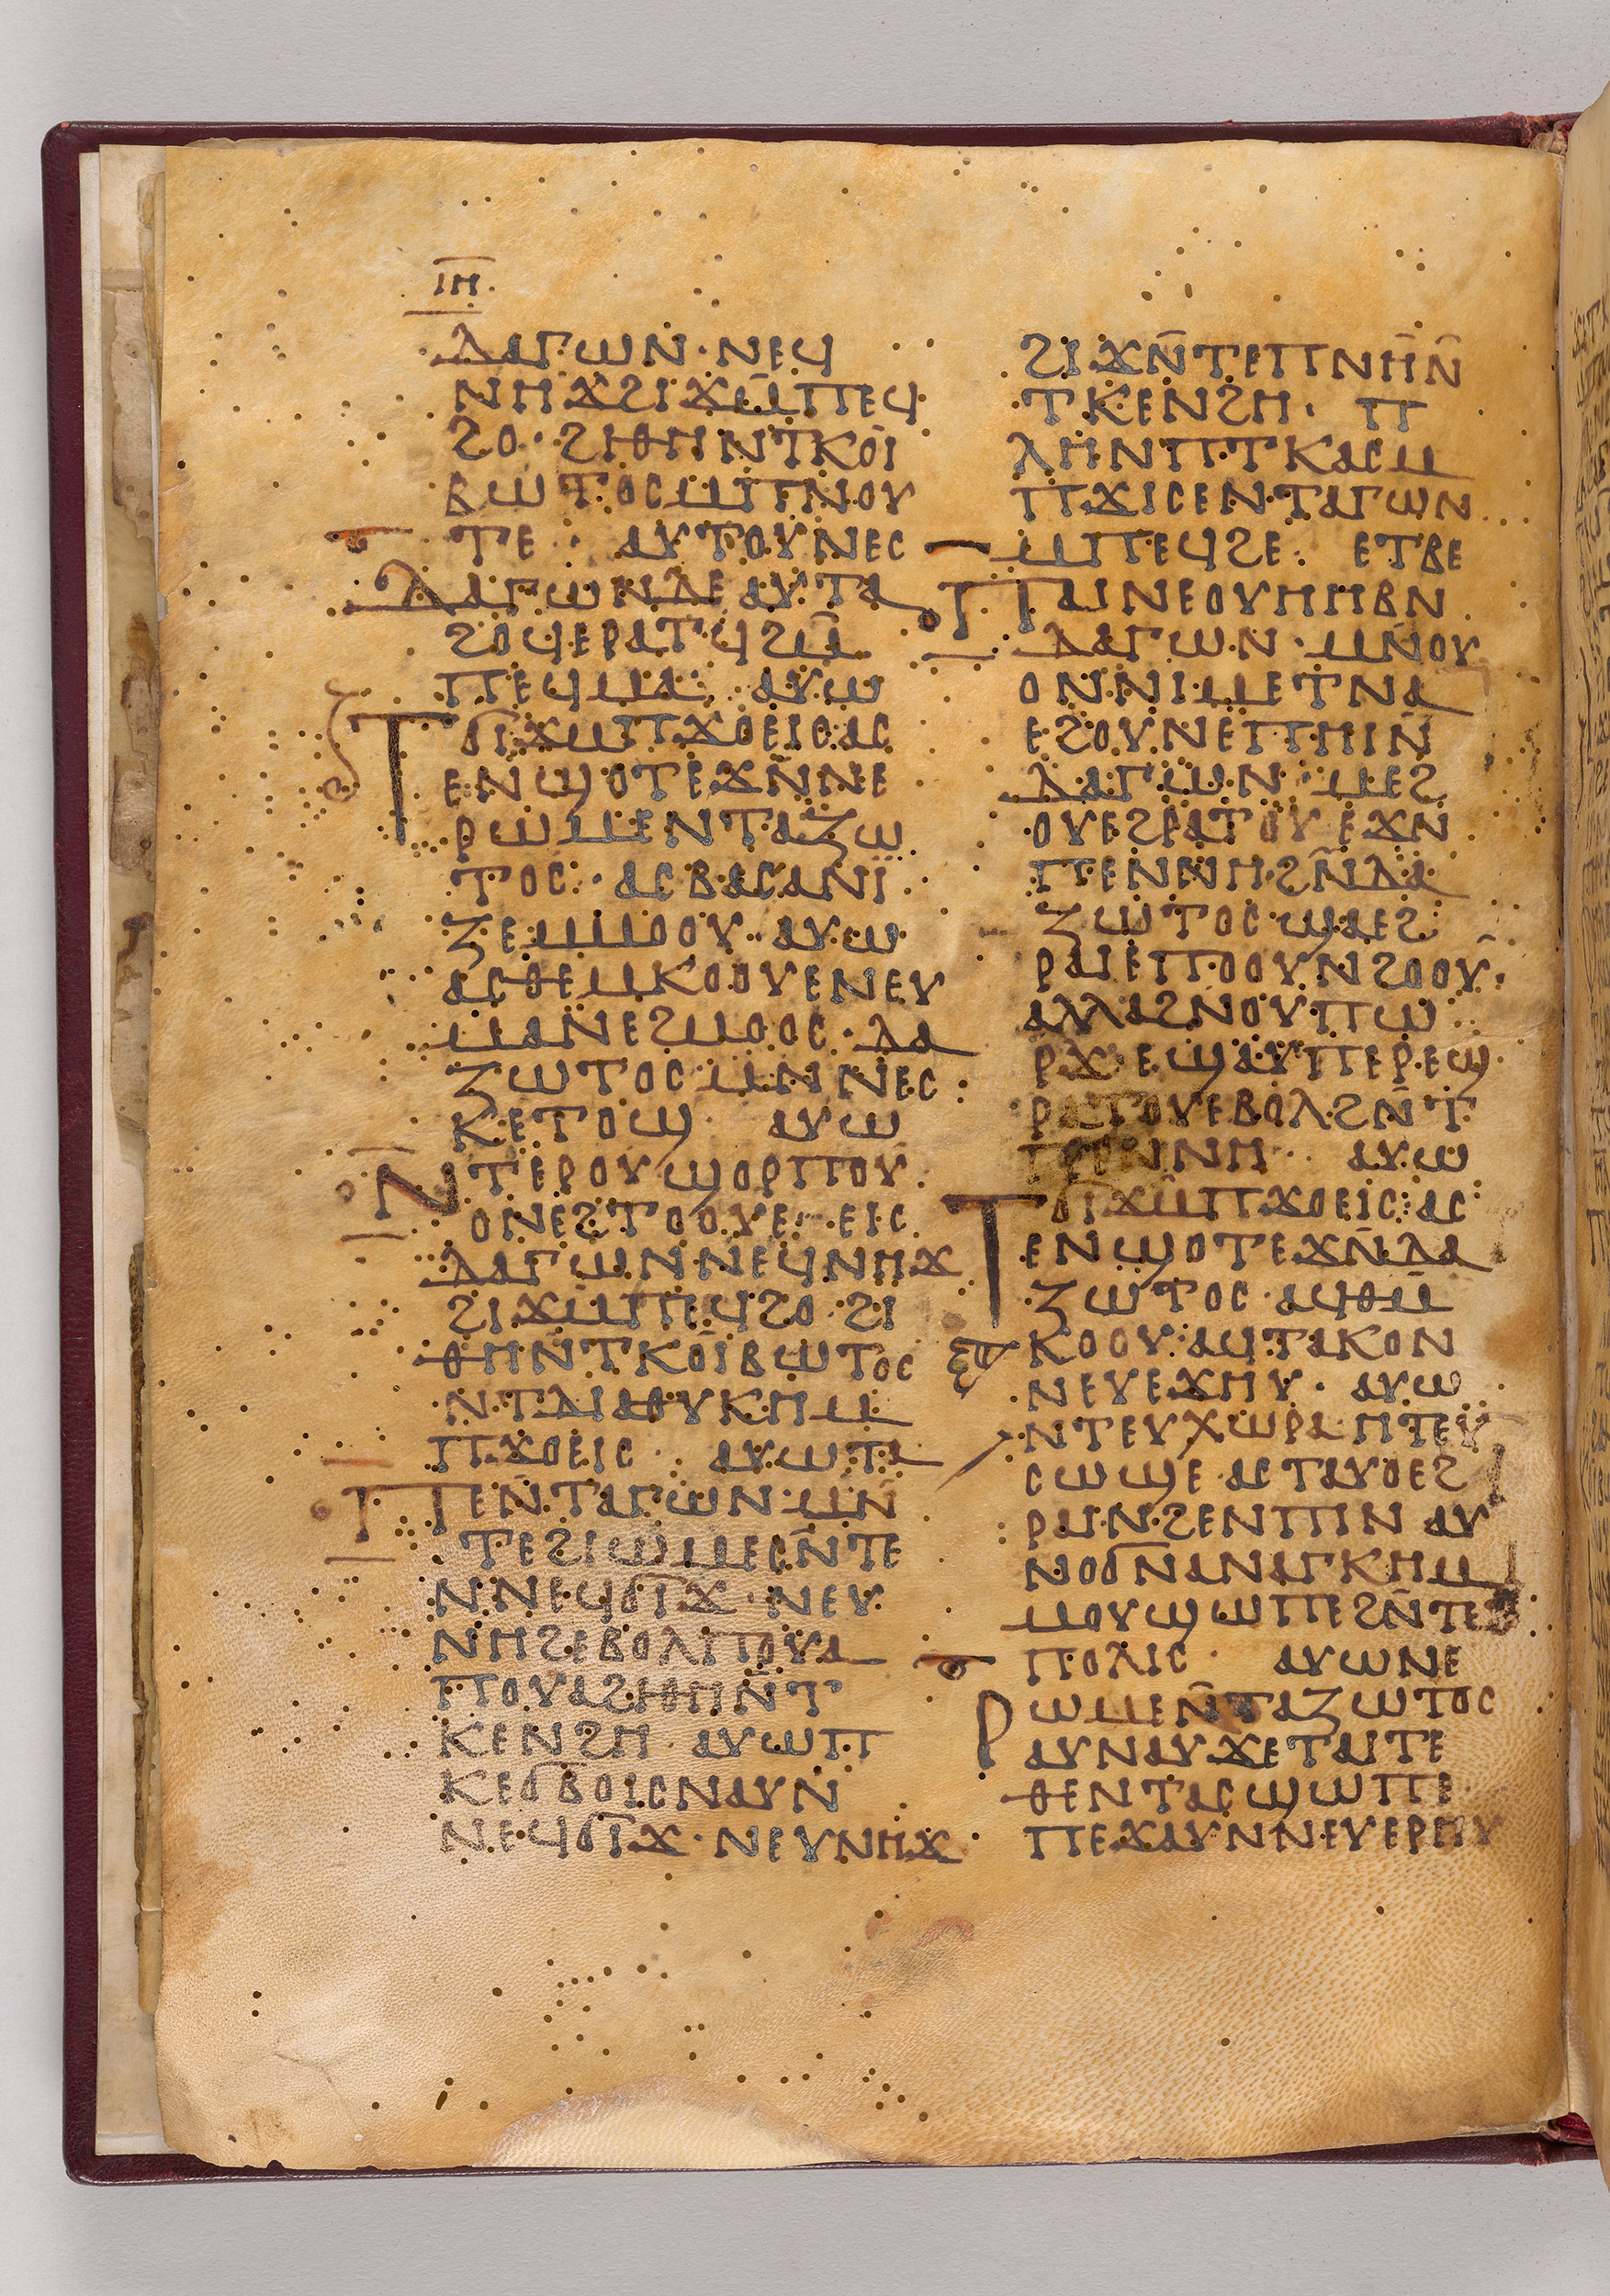 ⲓⲏ
ⲇⲁⲅⲱⲛ· ⲛⲉϥ
ⲛⲏϫϩⲓϫⲙ̄ⲡⲉϥ
ϩⲟ· ϩⲓⲑⲏⲛⲧϭⲓ
ⲃⲱⲧⲟⲥⲙⲡⲛⲟⲩ
ⲧⲉ· ⲁⲩⲧⲟⲩⲛⲉⲥ
ⲇⲁⲅⲱⲛⲇⲉⲁⲩⲧⲁ
ϩⲟϥⲉⲣⲁⲧϥϩⲙ̄
ⲡⲉϥⲙⲁ· ⲁⲩⲱ
ⲧϭⲓϫⲙⲡϫⲟⲉⲓⲥⲁⲥ
ⲉⲛϣⲟⲧⲉϫⲛ̄ⲛⲉ
ⲣⲱⲙⲉⲛⲧⲁⲍⲱ
ⲧⲟⲥ· ⲁⲥⲃⲁⲥⲁⲛⲓ̈
ⲍⲉⲙⲙⲟⲟⲩ· ⲁⲩⲱ
ⲁⲥⲑⲉⲙⲕⲟⲟⲩⲉⲛⲉⲩ
ⲙⲁⲛⲉϩⲙⲟⲟⲥ· ⲇⲁ
ⲍⲱⲧⲟⲥⲙⲛⲛⲉⲥ
ⲕⲉⲧⲟϣ· ⲁⲩⲱ
ⲛⲧⲉⲣⲟⲩϣⲟⲣⲡⲟⲩ
ⲟⲛⲉϩⲧⲟⲟⲩⲉ· ⲉⲓⲥ
ⲇⲁⲅⲱⲛⲛⲉϥⲛⲏϫ
ϩⲓϫⲙ̄ⲡⲉϥϩⲟ· ϩⲓ
ⲑⲏⲛ̄ⲧⲕⲟⲓ̈ⲃⲱⲧⲟⲥ
ⲛⲧⲇⲓⲁⲑⲩⲕⲏⲙ
ⲡϫⲟⲉⲓⲥ· ⲁⲩⲱⲧⲁ
ⲡⲉⲛ̄ⲧⲁⲅⲱⲛ· ⲙⲛ̄
ⲧⲉϩⲓⲱⲙⲉⲥⲛ̄ⲧⲉ
ⲛⲛⲉϥϭⲓϫ· ⲛⲉⲩ
ⲛⲏϩⲉⲃⲟⲗⲡⲟⲩⲁ
ⲡⲟⲩⲁϩⲓⲑⲏⲛ̄ⲧ
ⲕⲉⲛϩⲏ· ⲁⲩⲱⲡ
ⲕⲉϭⲃⲟⲓⲥⲛⲁⲩⲛ
ⲛⲉϥϭⲓϫ· ⲛⲉⲩⲛⲏϫ
ϩⲓϫⲛ̄ⲧⲉⲡⲛⲏⲛ̄
ⲧⲕⲉⲛϩⲏ· ⲡ
ⲗⲏⲛⲡⲧⲕⲁⲥⲙ
ⲡϫⲓⲥⲉⲛⲧⲁⲅⲱⲛ
ⲙⲡⲉϥϩⲉ· ⲉⲧⲃⲉ
ⲡⲁⲓⲛⲉⲟⲩⲏⲏⲃⲛ
ⲇⲁⲅⲱⲛ· ⲙⲛ̄ⲟⲩ
ⲟⲛⲛⲓⲙⲉⲧⲛⲁ
ⲉϩⲟⲩⲛⲉⲡⲏⲓⲛ̄
ⲇⲁⲅⲱⲛ· ⲙⲉϩ
ⲟⲩⲉϩⲣⲁⲧⲟⲩⲉϫⲛ
ⲡⲉⲛⲛⲏϩⲛ̄ⲇⲁ
ⲍⲱⲧⲟⲥϣⲁⲉϩ
ⲣⲁⲓⲉⲡⲟⲟⲩⲛϩⲟⲟⲩ·
ⲁⲗⲗⲁϩⲛⲟⲩⲡⲱ
ⲣϫ· ⲉϣⲁⲩⲡⲉⲣⲉϣ
ⲣⲁⲧⲟⲩⲉⲃⲟⲗϩⲛ̄ⲧ
ⲡⲉⲛⲛⲏ· ⲁⲩⲱ
ⲧϭⲓϫⲙ̄ⲡϫⲟⲉⲓⲥ· ⲁⲥ
ⲉⲛϣⲟⲧⲉϫⲛ̄ⲇⲁ
ⲍⲱⲧⲟⲥ· ⲁϥⲑⲙ̄
ⲕⲟⲟⲩ· ⲁϥⲧⲁⲕⲟⲛ
ⲛⲉⲩⲉϫⲏⲩ· ⲁⲩⲱ
ⲛⲧⲉⲩⲭⲱⲣⲁ· ⲏⲧⲉⲩ
ⲥⲱϣⲉ· ⲁⲥⲧⲁⲩⲟⲉϩ
ⲣⲁⲓⲛ· ϩⲉⲛⲡⲓⲛ ⲁⲩ
ⲛⲟϭⲛⲁⲛⲁⲅⲕⲏⲙ
ⲙⲟⲩϣⲱⲡⲉϩⲛ̄ⲧⲉ
ⲡⲟⲗⲓⲥ· ⲁⲩⲱⲛⲉ
ⲣⲱⲙⲉⲛ̄ⲧⲁⲍⲱⲧⲟⲥ
ⲁⲩⲛⲁⲩϫⲉⲧⲁⲓⲧⲉ
ⲑⲉⲛⲧⲁⲥϣⲱⲡⲉ
ⲡⲉϫⲁⲩⲛⲛⲉⲩⲉⲣⲏⲩ